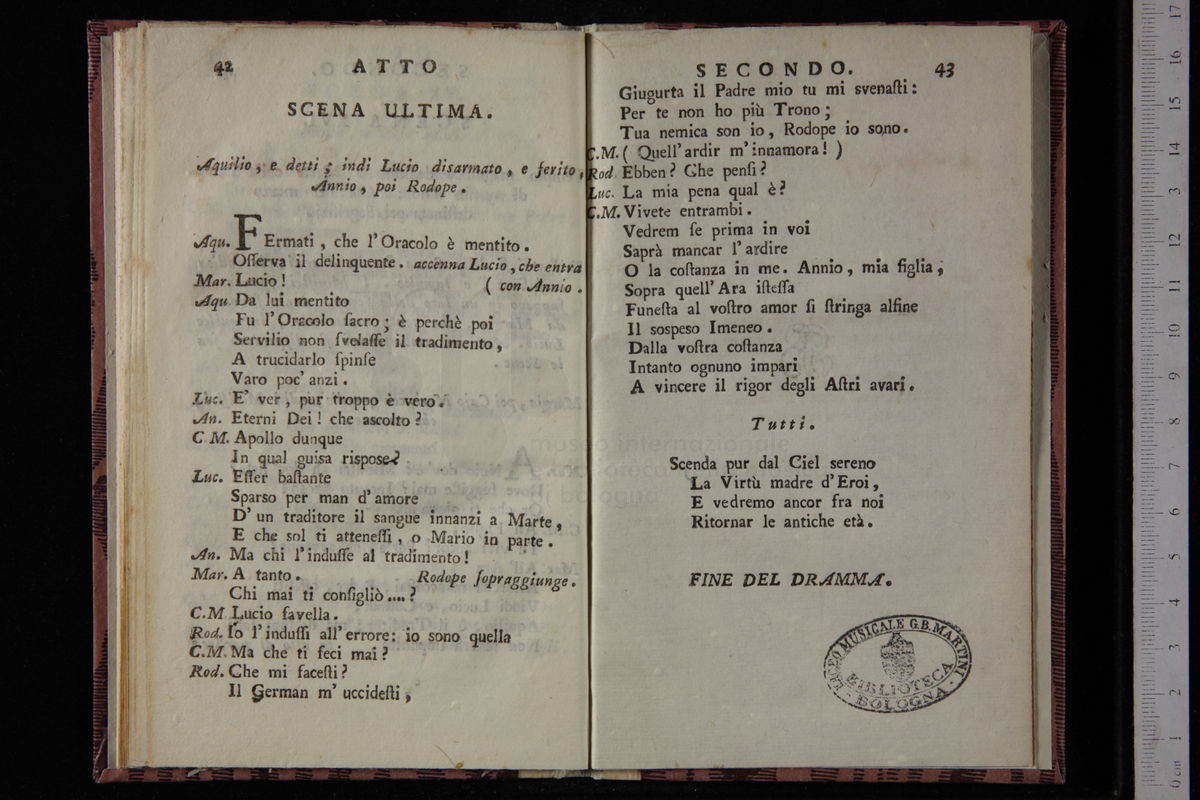 42 ATTO
SCENA ULTIMA.
Aquilio, e detti; indi Lucio disarmato, e ferito,
Annio, poi Rodope.
Aqu. FErmati, che l'Oracolo è mentito.
Oſſerva il delinquente. accenna Lucio, che entra
Mar. Lucio! ( con Annio.
Aqu Da lui mentito
Fu l'Oracolo ſacro; è perchè poi
Servilio non ſvelaſſe il tradimento,
A trucidarlo ſpinſe
Varo poc' anzi.
Luc. E' ver, pur troppo è vero.
An. Eterni Dei! che ascolto?
C M. Apollo dunque
In qual guisa rispose?
Luc. Eſſer baſtante
Sparso per man d'amore
D' un traditore il sangue innanzi a Marte,
E che sol ti atteneſſi, o Mario in parte.
An. Ma chi l'induſſe al tradimento!
Mar. A tanto. Rodope ſopraggiunge.
Chi mai ti conſigliò....?
C.M Lucio favella.
Rod. Io l'induſſi all'errore: io sono quella
C.M. Ma che ti feci mai?
Rod. Che mi faceſti?
Il German m' uccideſti,
SECONDO. 43
Giugurta il Padre mio tu mi svenaſti:
Per te non ho più Trono;
Tua nemica son io, Rodope io sono.
C.M. ( Quell'ardir m'innamora! )
Rod. Ebben? Che penſi?
Luc. La mia pena qual è?
C.M. Vivete entrambi.
Vedrem ſe prima in voi
Saprà mancar l'ardire
O la coſtanza in me. Annio, mia figlia,
Sopra quell'Ara iſteſſa
Funeſta al voſtro amor ſi ſtringa alfine
Il sospeso Imeneo.
Dalla voſtra coſtanza
Intanto ognuno impari
A vincere il rigor degli Aſtri avari.
Tutti.
Scenda pur dal Ciel sereno
La Virtù madre d'Eroi,
E vedremo ancor fra noi
Ritornar le antiche età.
FINE DEL DRAMMA.
LICEO MUSICALE G.B. MARTINI
BIBLIOTECA
- BOLOGNA -
museo internazionale
bologna
0 cm 1 2 3 4 5 6 7 8 9 10 11 12 13 14 15 16 17